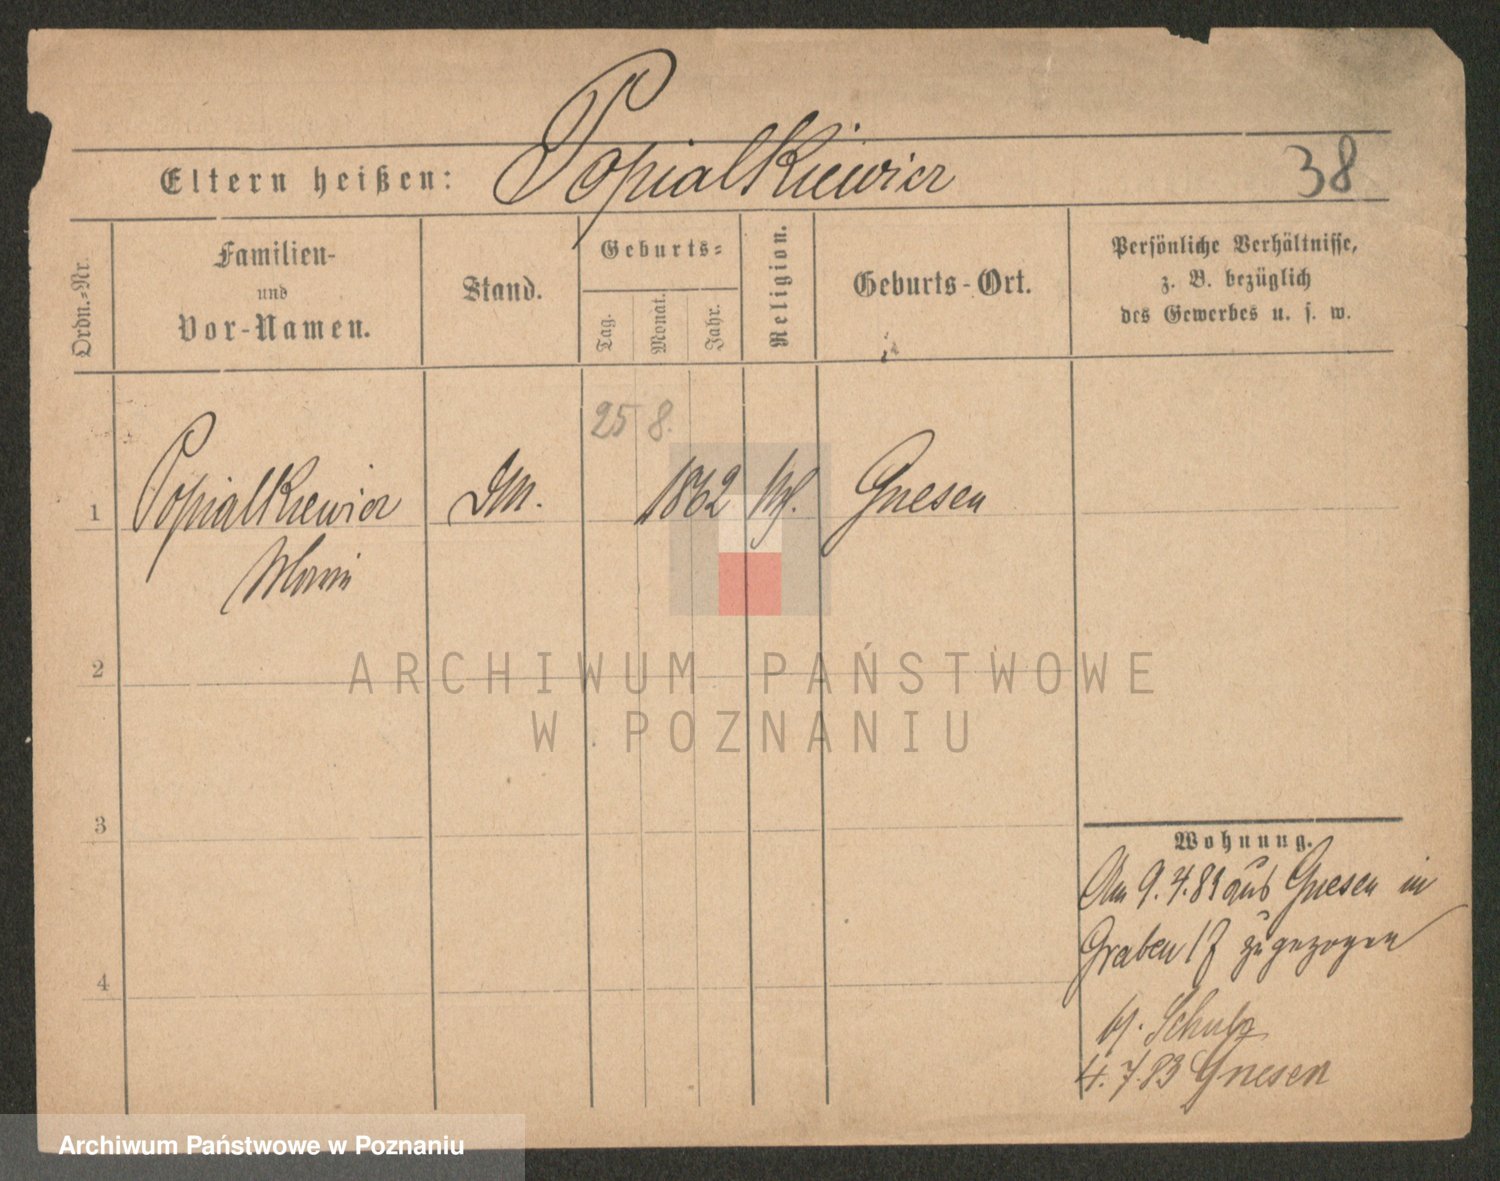 Eltern heißen: Popialkiewicz 38
Ordn.=Nr.
Familien-
und
Vor-Namen.
Stand.
Geburts=
Tag.
Monat.
Jahr.
Religion.
Geburts-Ort.
Persönliche Verhältnisse,
z. B. bezüglich
des Gewerbes u. s. w.
25 8.
1 Popialkiewicz 1862 Gnesen
2
3
4
Wohnung.
Am 9.4.83 aus Gnesen in
Graben 17 zugezogen
Schulz
4.7.83 Gnesen
ARCHIWUM PAŃSTWOWE
W POZNANIU
Archiwum Państwowe w Poznaniu